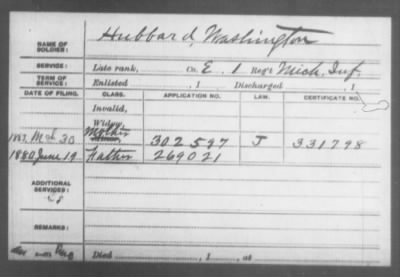 NAME OF SOLDIER: Hubbard, Washington
SERVICE: Late rank, Co. E. 1 Reg't Mich. Inf.
TERM OF SERVICE: Enlisted , 1 Discharged , 1
DATE OF FILING. CLASS. APPLICATION NO. LAW. CERTIFICATE NO.
Invalid,
Widow,
1883, Mch 30 Mother 302597 J 331798
1880 June 19 Father 269021
ADDITIONAL SERVICES:
REMARKS:
Died , 1 , at